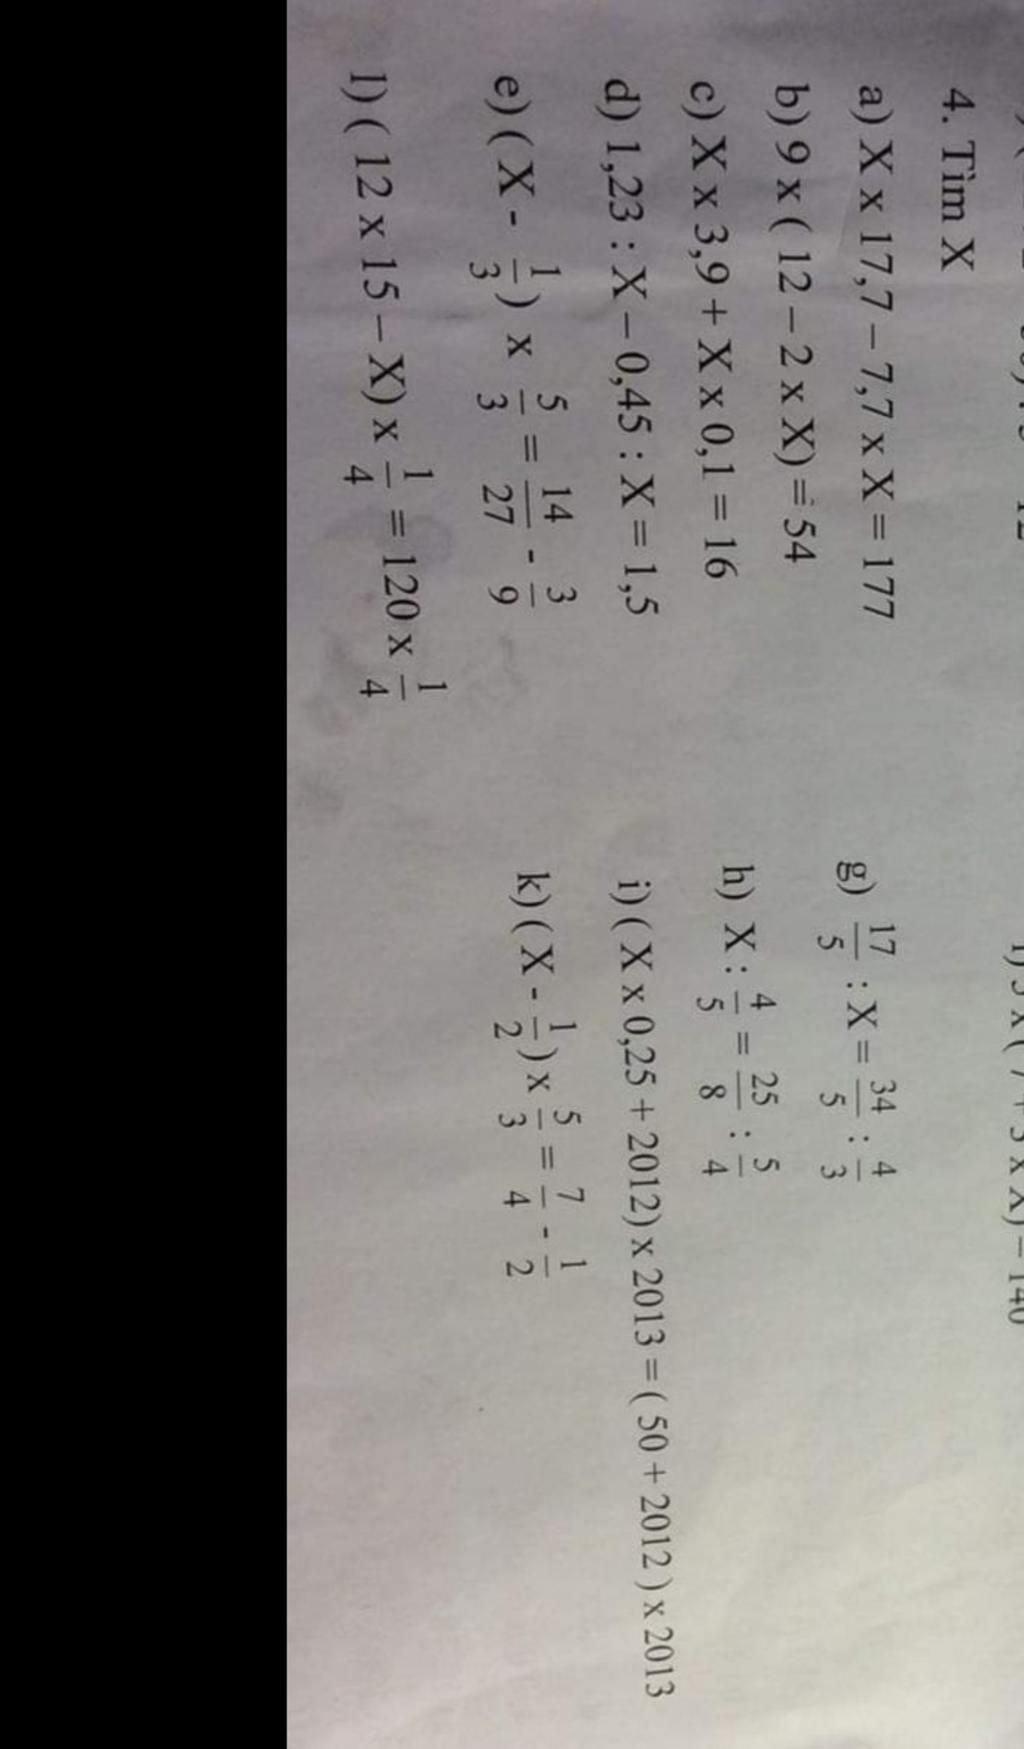 4. Tìm X
a) X x 17,7 – 7,7 x X = 177
b) 9 x ( 12 – 2 x X) = 54
c) X x 3,9 + X x 0,1 = 16
d) 1,23 : X – 0,45 : X = 1,5
e) ( X - 1/3) x 5/3 = 14/27 - 3/9
l) ( 12 x 15 – X) x 1/4 = 120 x 1/4
g) 17/5 : X = 34/5 : 4/3
h) X : 4/5 = 25/8 : 5/4
i) ( X x 0,25 + 2012) x 2013 = ( 50 + 2012 ) x 2013
k) ( X - 1/2) x 5/3 = 7/4 - 1/2